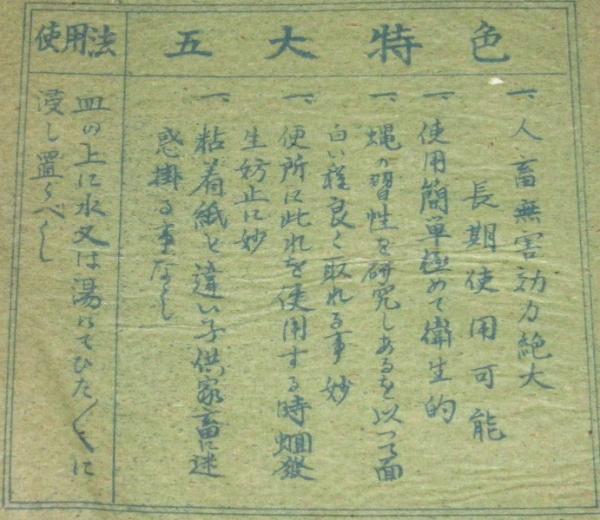 五大特色
一、人畜無害効力絶大
長期使用可能
一、使用簡単極めて衛生的
一、蝿の習性を研究しあるを以つて面
白い程良く取れる事妙
一、便所に此れを使用する時蛆發
生妨止に妙
一、粘着紙と違い子供家畜に迷
惑掛る事なし
使用法
皿の上に水又は湯にてひた〳〵に
浸し置くべし